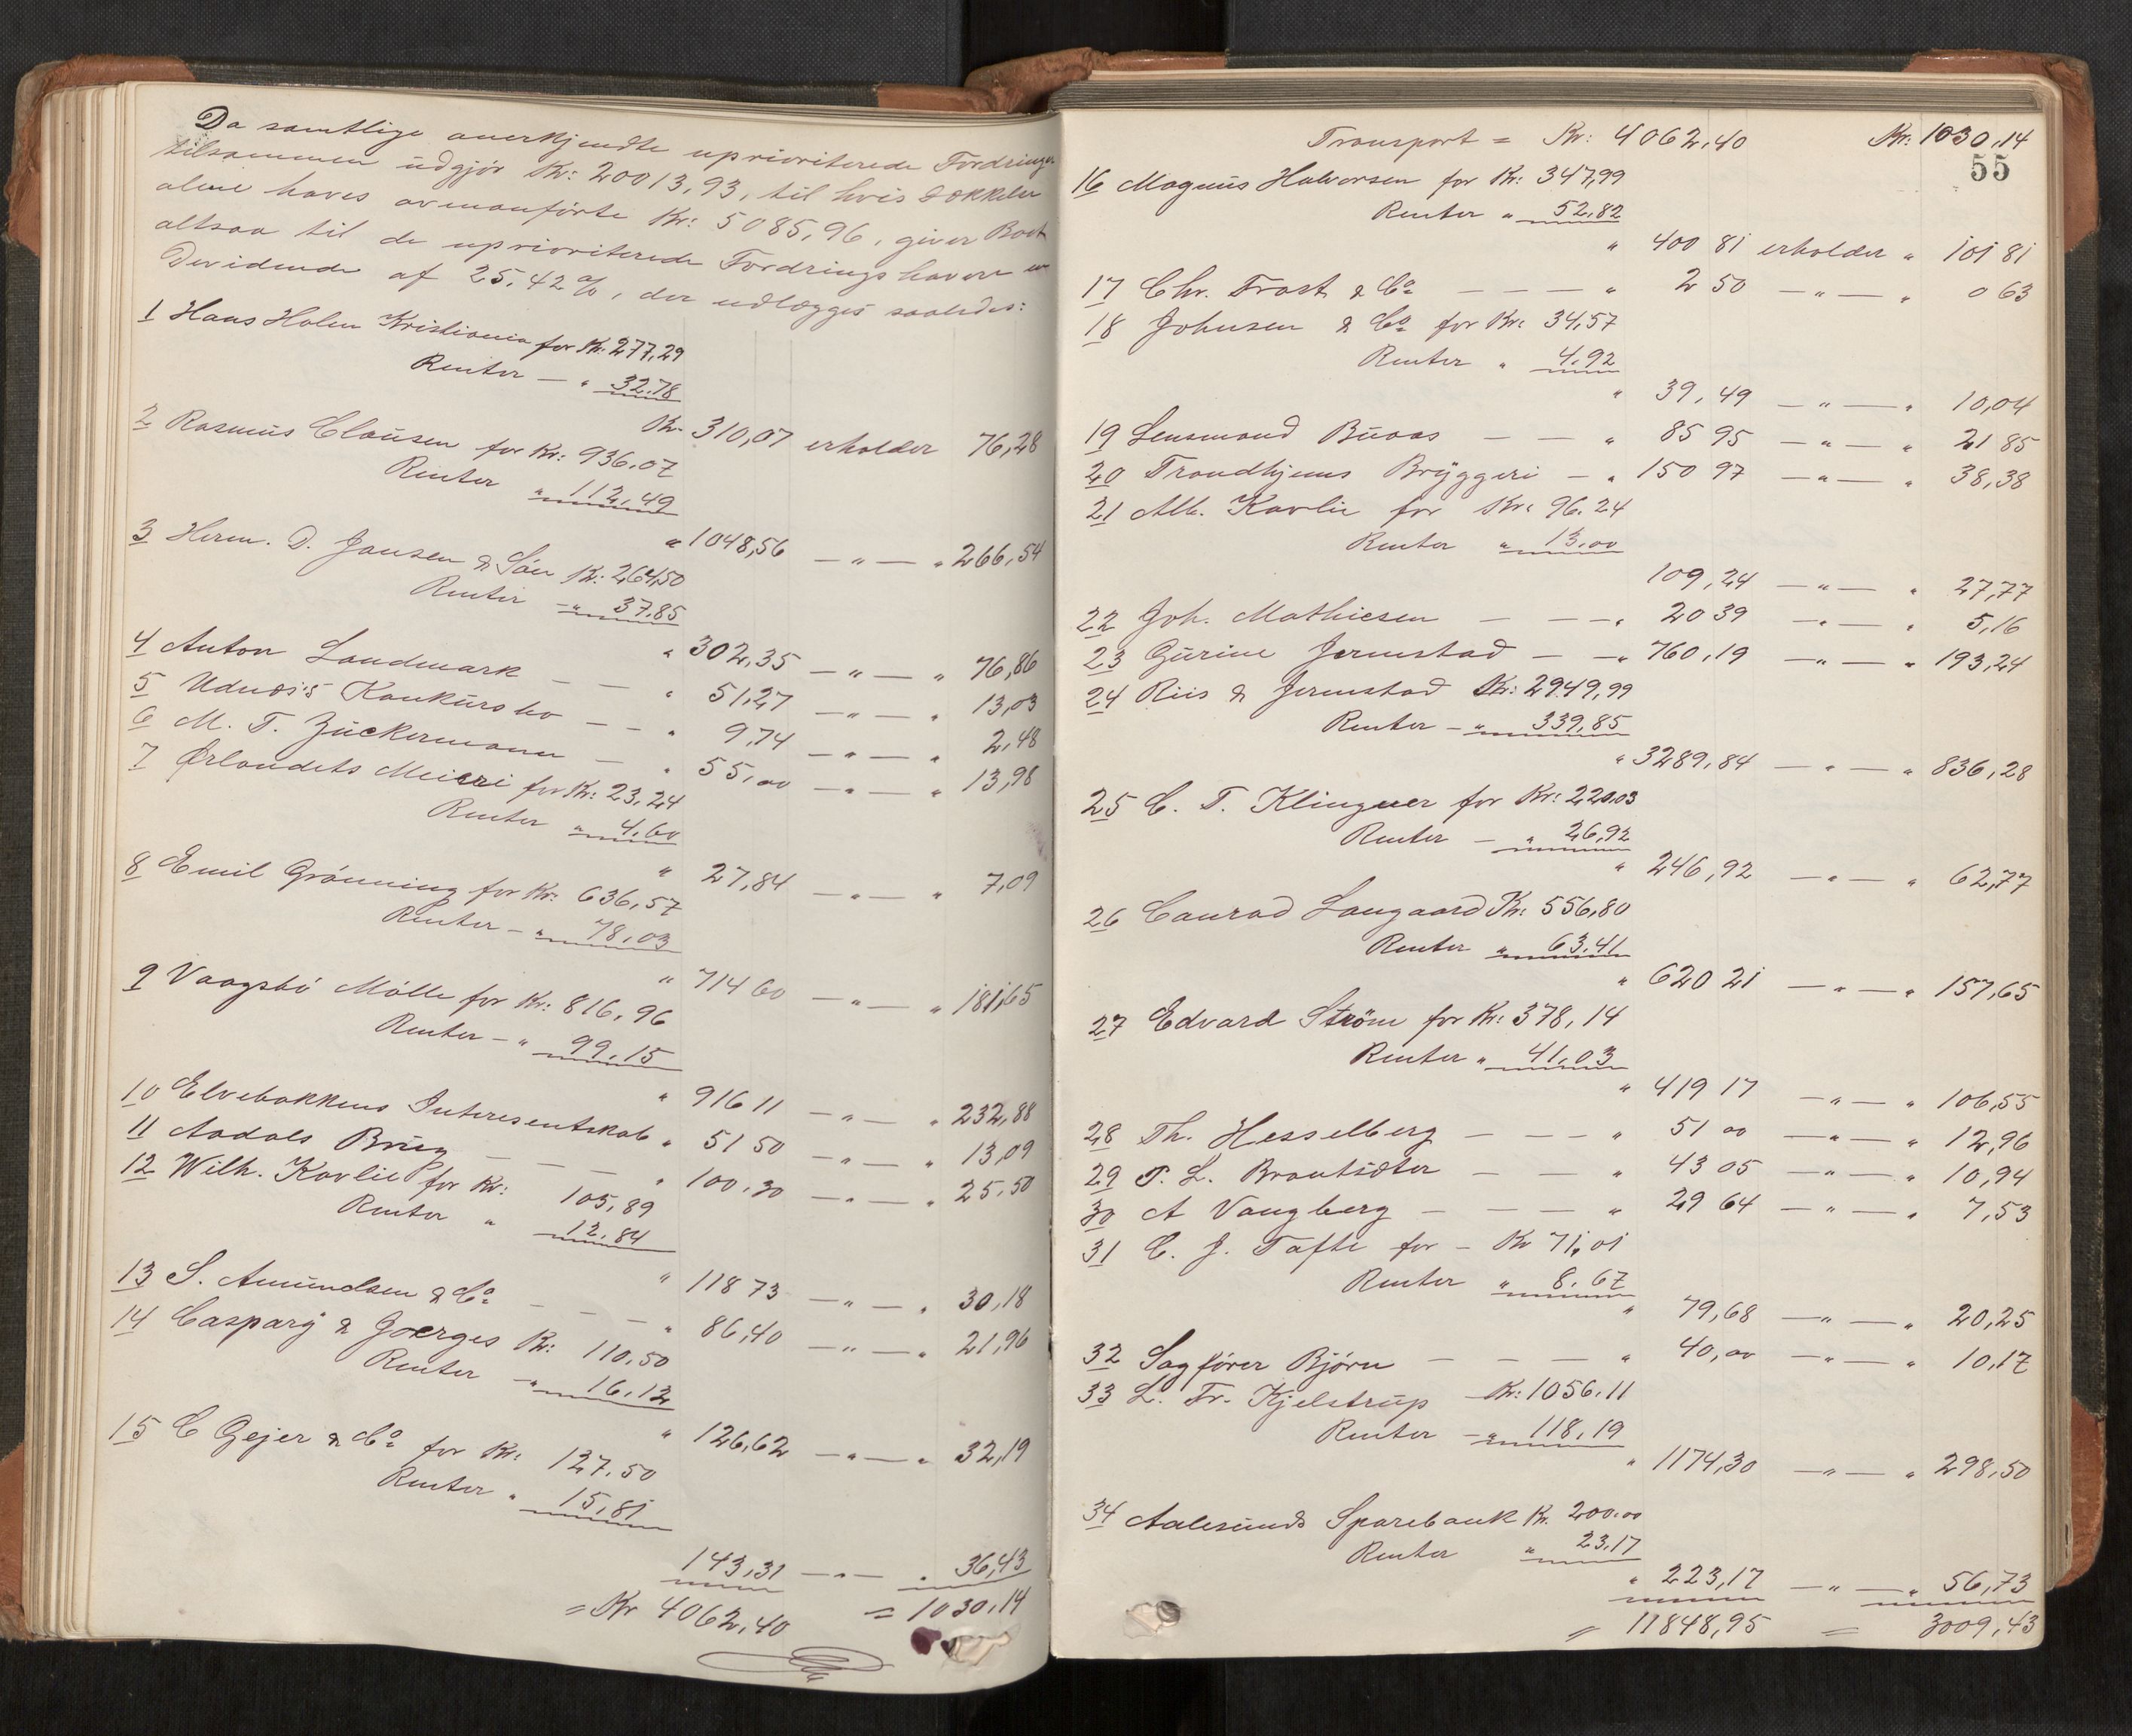 Da samtlige anerkjendte uprioriterede Fordringer
tilsammen udgjør Kr: 20013,93, til hvis Dækkelse
alene haves ovenanførte Kr: 5085,96, giver Boet
altsaa til de uprioriterede Fordringshavere en
Devidende af 25,42 %, der udlægges saaledes:
1 Hans Holen Kristiania for Kr. 277,29
Renter — " 32,78
Kr. 310,07 erholder 76,28
2 Rasmus Clausen for Kr: 936,07
Renter " 112,49
" 1048,56 — " — " 266,54
3 Herm. D. Jansen & Søn Kr: 264,50
Renter — " 37,85
" 302,35 — " — " 76,86
4 Anton Landmark — — " 51,27 — " — " 13,03
5 Udnæs's Konkursbo — — " 9,74 — " — " 2,48
6 M. T. Zückermann — " 55,00 — " — " 13,98
7 Ørlandets Meieri for Kr: 23,24
Renter " 4,60
" 27,84 — " — " 7,09
8 Emil Grønning for Kr: 636,57
Renter — " 78,03
" 714 60 — " — " 181,65
9 Vaagsbø Mølle for Kr: 816,96
Renter — " 99,15
" 916 11 — " — " 232,88
10 Elvebakkens Interesentskab " 51 50 — " — " 13,09
11 Aadals Brug — — — " 100,30 — " — " 25,50
12 Wilh. Kavlie for Kr: 105,89
Renter " 12,84
" 118 73 — " — " 30,18
13 S. Amundsen & Co — — — " 86,40 — " — " 21,96
14 Caspary & Goerges Kr: 110,50
Renter — " 16,12
" 126,62 — " — " 32,19
15 C Gejer & Co for Kr: 127,50
Renter " 15,81
143,31 — " — " 36,43
= Kr 4062,40 = 1030,14
Transport = Kr: 4062,40 Kr: 1030,14
55
16 Magnus Halvorsen for Kr: 347,99
Renter " 52,82
" 400 81 erholder " 101 81
17 Chr. Trast & Co — — — " 2 50 — " — " 0 63
18 Johnsen & Co for Kr: 34,57
Renter " 4,92
" 39,49 — " — " 10,04
19 Lensmand Buaas — — " 85 95 — " — " 21 85
20 Trondhjems Bryggeri — " 150 97 — " — " 38,38
21 Alb. Kavlie for Kr: 96,24
Renter " 13,00
109,24 — " — " 27,77
22 Joh. Mathiesen — — — " 20 39 — " — " 5,16
23 Gurine Jermstad — — " 760,19 — " — " 193,24
24 Riis & Jermstad Kr: 2949,99
Renter — " 339,85
" 3289,84 — " — " 836,28
25 C. T. Klingner for Kr: 220,03
Renter — " 26,92
" 246,92 — " — " 62,77
26 Conrad Langaard Kr: 556,80
Renter " 63,41
" 620 21 — " — " 157,65
27 Edvard Strøm for Kr: 378,14
Renter " 41,03
" 419 17 — " — " 106,55
28 Th. Hesselberg — — — " 51 00 — " — " 12,96
29 T. L. Brautsæter — — " 43 05 — " — " 10,94
30 A Vangberg — — — " 29 64 — " — " 7,53
31 C. J. Tafte for — Kr 71,01
Renter " 8,67
" 79,68 — " — " 20,25
32 Sagfører Bjørn — — — " 40,00 — " — " 10,17
33 L. Fr. Kjelstrup — Kr: 1056,11
Renter — " 118,19
" 1174,30 — " — " 298,50
34 Aalesunds Sparebank Kr. 200,00
Renter " 23,17
" 223,17 — " — " 56,73
= 11848,95 = 3009,43